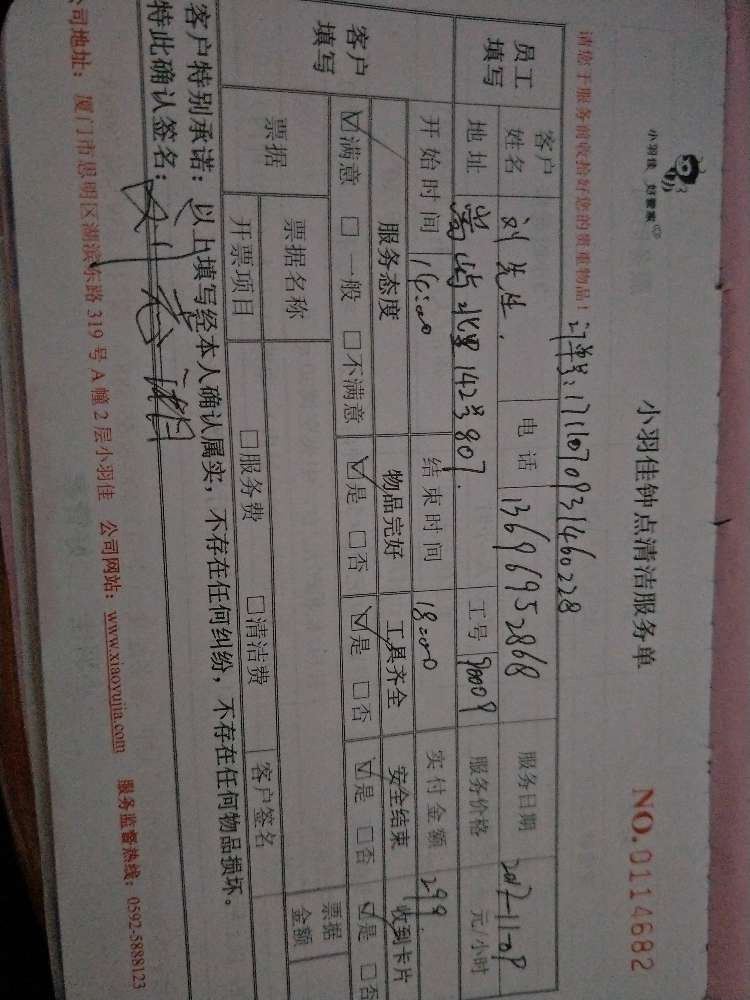 小羽佳 好管家
小羽佳钟点清洁服务单
NO.0114682
请您于服务前收拾好您的贵重物品!
订单号:1711070931460228
员工填写
客户姓名 刘先生. 电话 13696952868 服务日期 2017-11-09
地址 嵩屿北里142号807. 工号 90009 服务价格 元/小时
客户填写
开始时间 14:00 结束时间 18:00 实付金额 299
服务态度 物品完好 工具齐全 安全结束 收到卡片
☑满意 □一般 □不满意 ☑是 □否 ☑是 □否 ☑是 □否 ☑是 □否
票据 票据名称 票据金额
开票项目 □服务费 □清洁费 客户签名
客户特别承诺:以上填写经本人确认属实,不存在任何纠纷,不存在任何物品损坏。
特此确认签名:
公司地址:厦门市思明区湖滨东路319号A幢2层小羽佳 公司网站:www.xiaoyujia.com 服务监督热线:0592-5888123